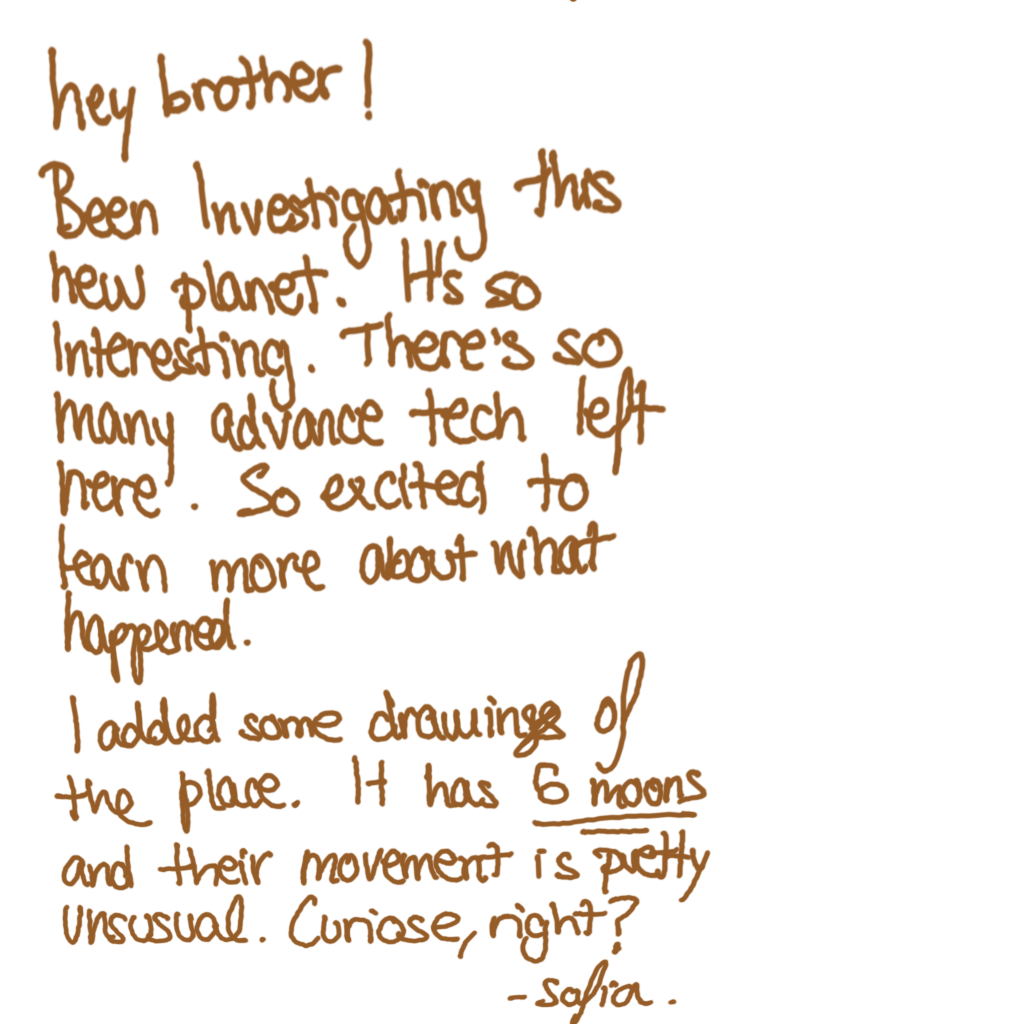 hey brother!
Been Investigating this
new planet. It's so
Interesting. There's so
many advance tech left
here. So excited to
learn more about what
happened.
I added some drawings of
the place. It has 6 moons
and their movement is pretty
unsusual. Curiose, right?
-Sofia.